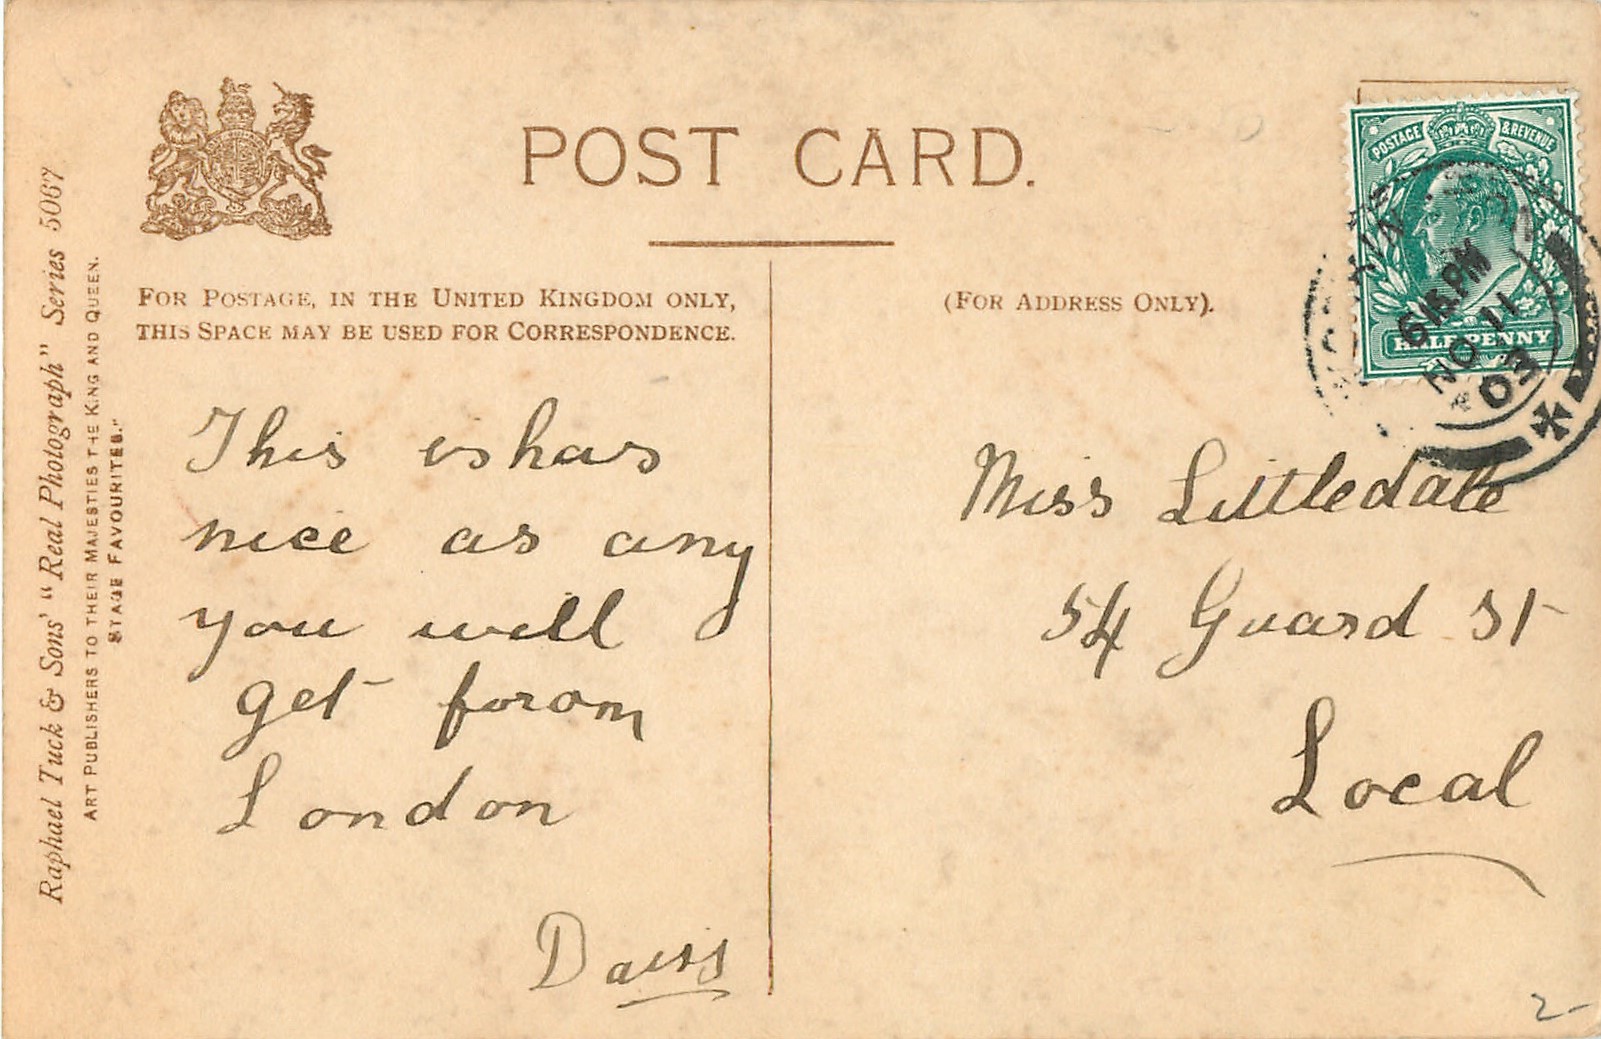 POST CARD.
FOR POSTAGE, IN THE UNITED KINGDOM ONLY,
THIS SPACE MAY BE USED FOR CORRESPONDENCE.
(FOR ADDRESS ONLY).
Raphael Tuck & Sons' "Real Photograph" Series 5067
ART PUBLISHERS TO THEIR MAJESTIES THE KING AND QUEEN.
STAGE FAVOURITES."
POSTAGE & REVENUE
HALFPENNY
6 15 PM
NO 11
03
This is has
nice as any
you will
get from
London
Miss Littledale
54 Guard St
Local
2-